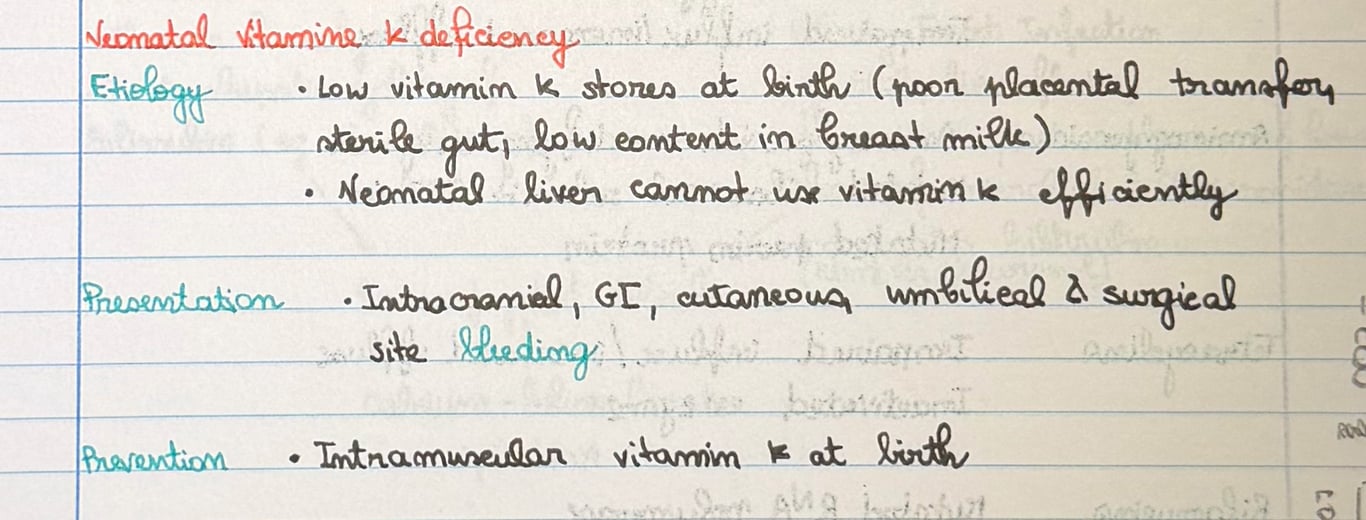 Neonatal vitamine k deficiency
Etiology • Low vitamin k stores at birth (poor placental transfer,
sterile gut, low content in breast milk)
• Neonatal liver cannot use vitamin k efficiently
Presentation • Intracranial, GI, cutaneous, umbilical & surgical
site bleeding
Prevention • Intramuscular vitamin k at birth